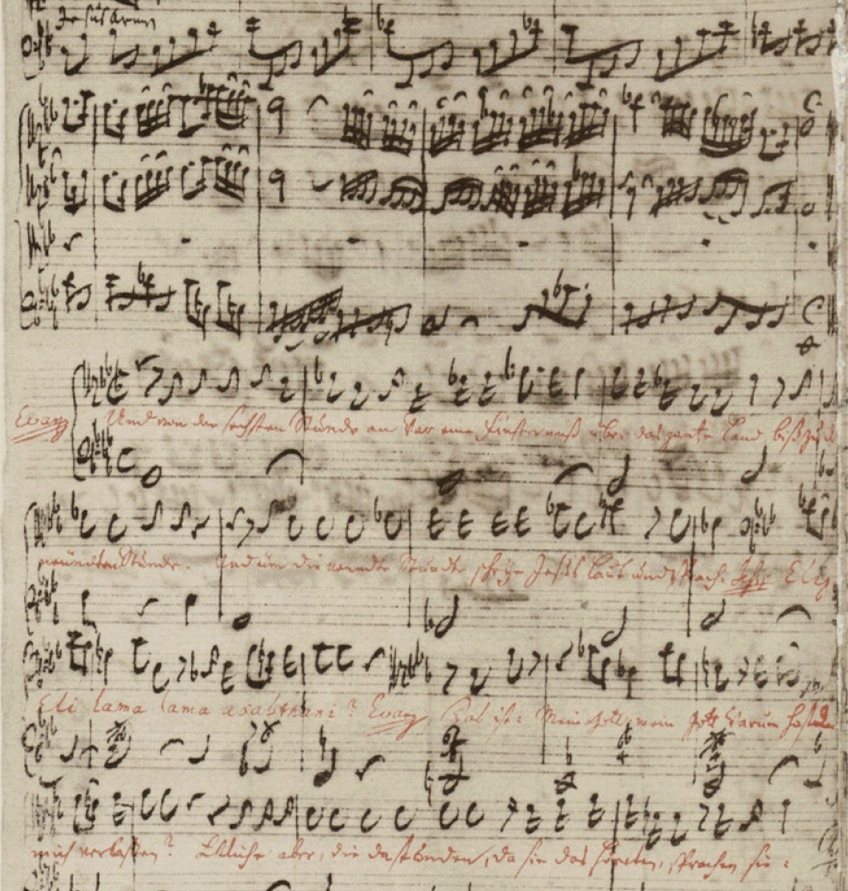 Jesus Arm
Evang Und von der sechsten Stunde an war eine Finsterniß über das gantze Land, biß zu d
neundten Stunde. Und um die neundte Stunde schrye Jesus laut und sprach. Eli
Eli lama lama asabthani? Evang Das ist: Mein Gott, mein Gott warum hastu
mich verlaßen? Ettliche aber, die da stunden, da sie das höreten, sprachen sie: